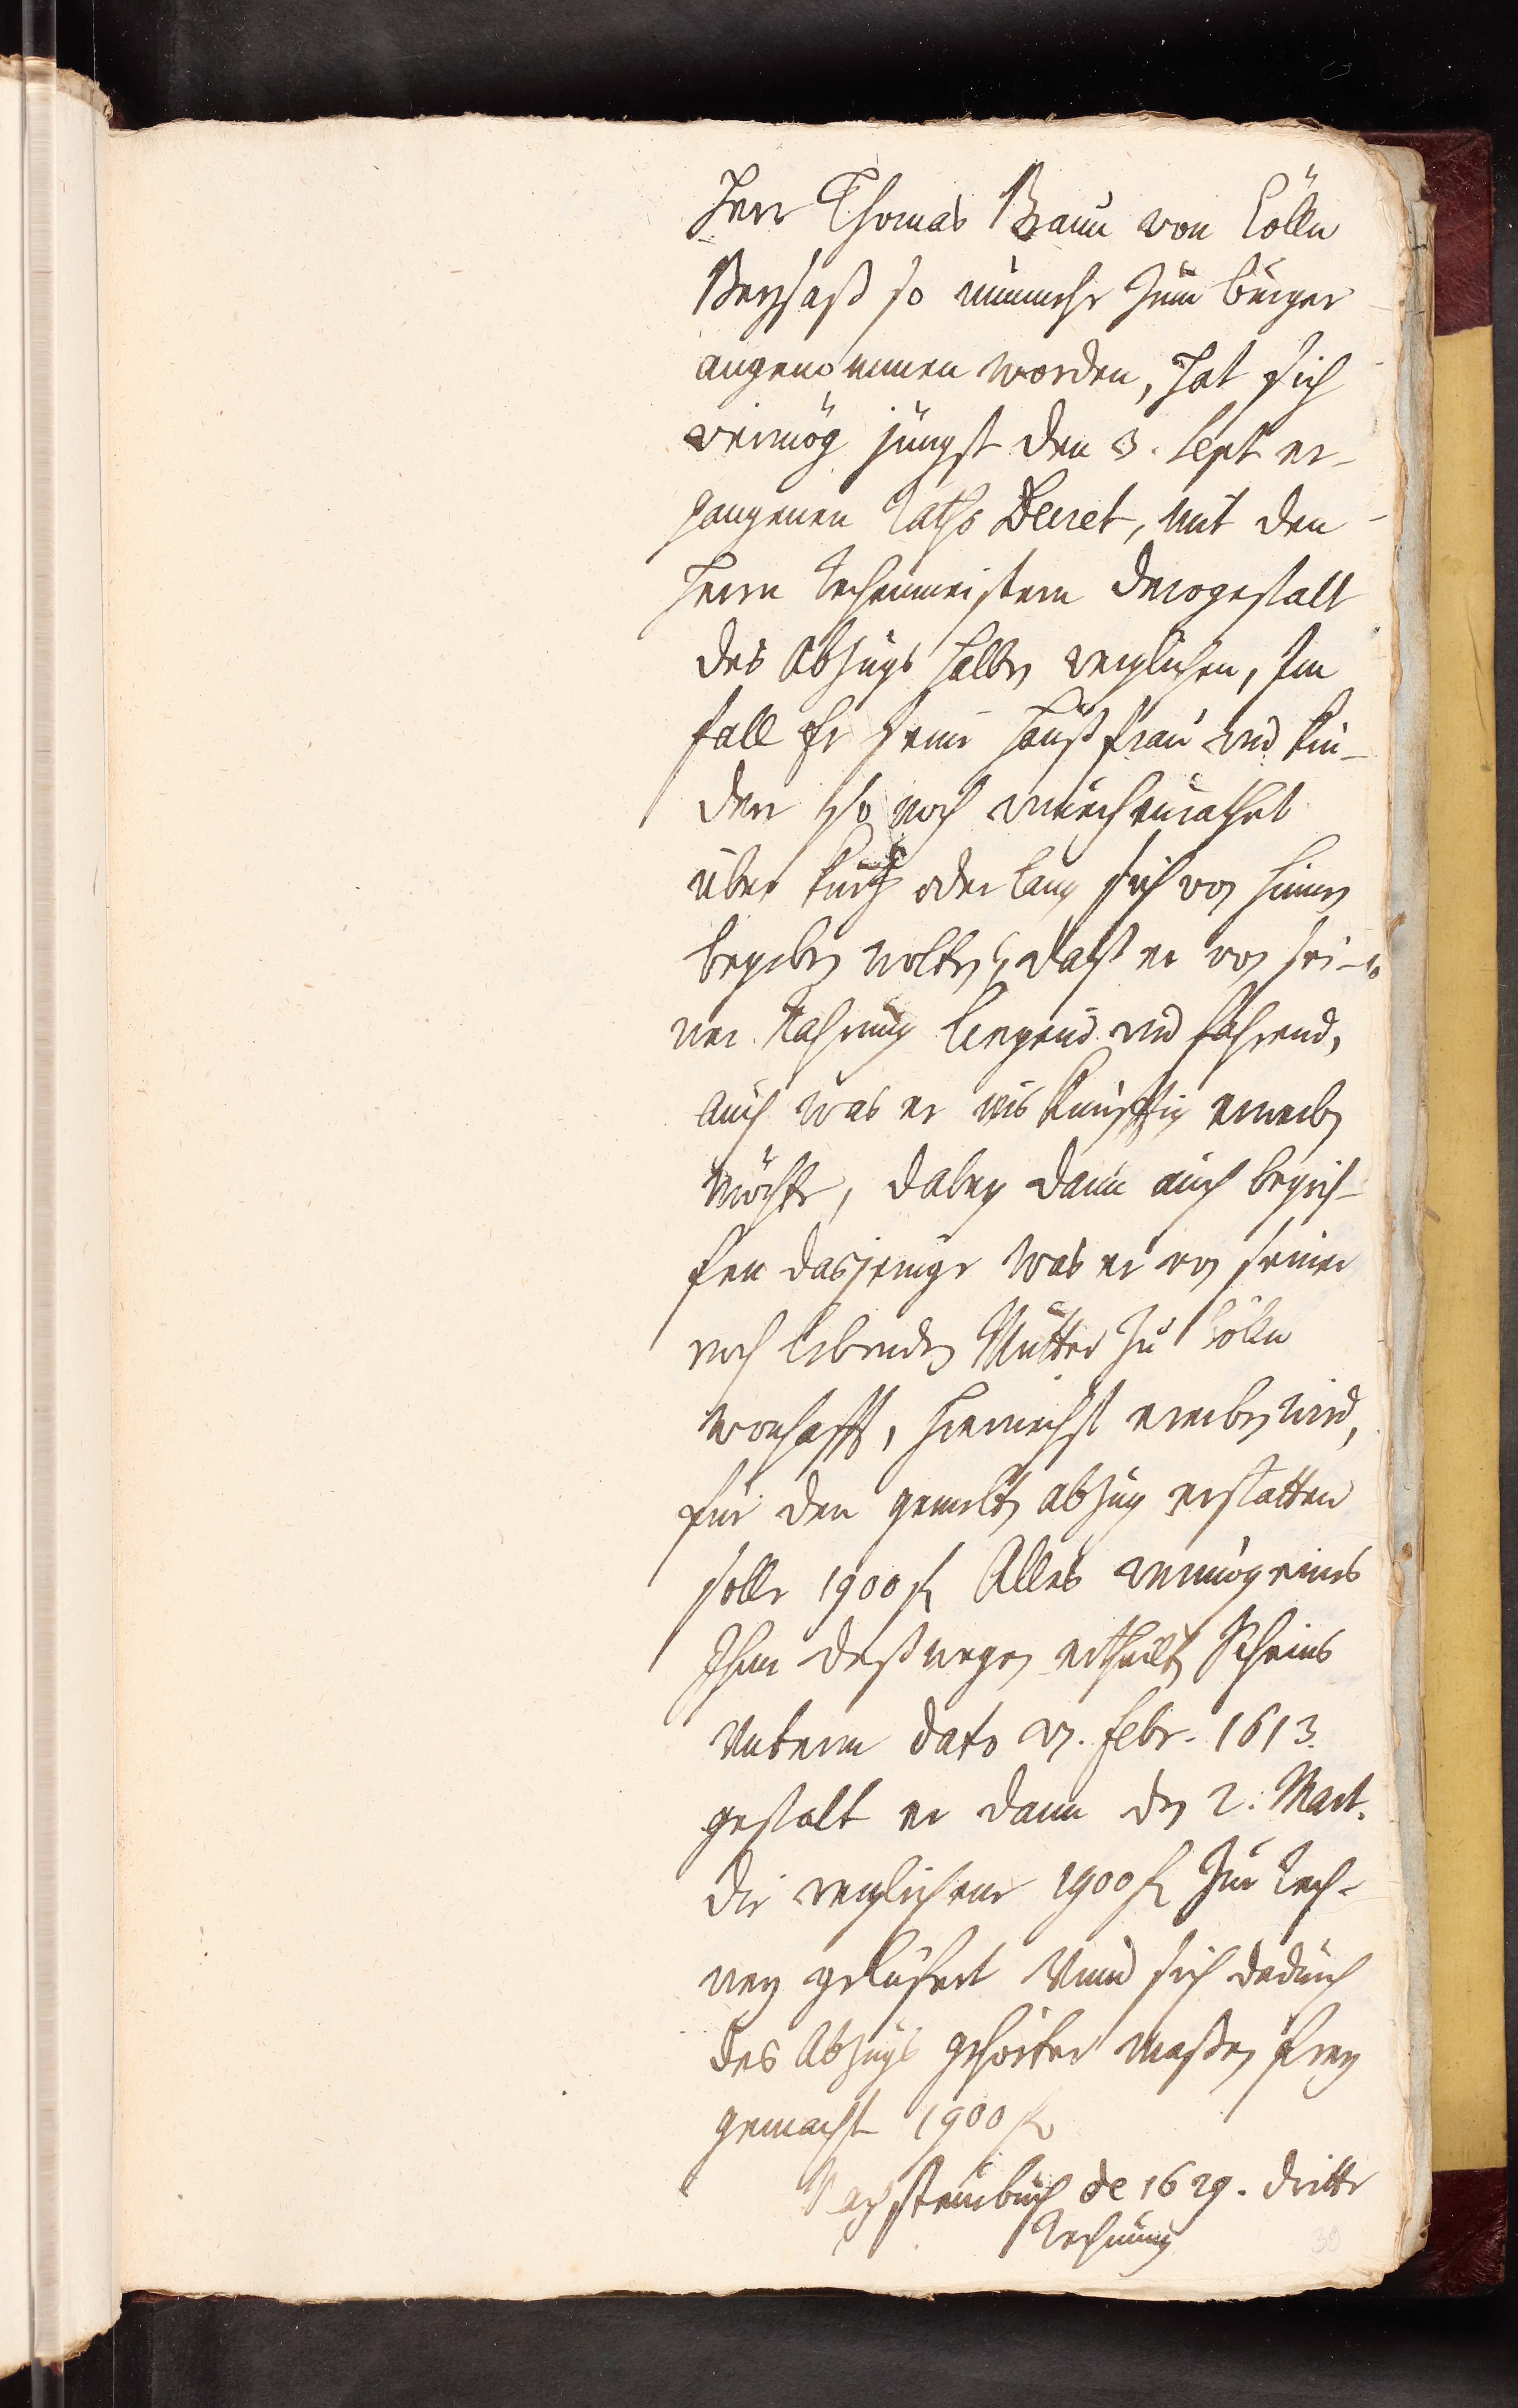 Herr Thomas Braun von Cölln
Beysaß so nunmehr zum burger
angenommen worden, Hat sich
vermög jüngst den 3. Sept er-
gangenen Raths Decret, mit den
Herrn Rechenmeistern derogestalt
des Abzugs halben verglichen, Im
fall Er seine Haußfrau und Kin-
der so noch unverheurathet
über kurtz oder lang sich von hinnen
begeben wolten, daß er von sei-
ner Nahrung liegend und fahrend,
auch was er ins künfftig erwerben
möchte, dabey dann auch begrif-
fen dasjenige was er von seiner
noch lebenden Mutter zu Cölln
wonhafft, hiernechst ererben wird,
für den gemelten abzug erstatten
solle 1900 fl Alles vermög eines
Ihm deßwegen ertheilten Scheins
Unterm dato 27. Febr. 1613.
gestalt er dann den 2. Mart.
die verglichene 1900 fl Zur Rech-
ney geliefert Unnd sich dadurch
des Abzugs gehörter maßen frey
gemacht 1900 fl
steinbuch de 1629. dritte
Rechnung
30